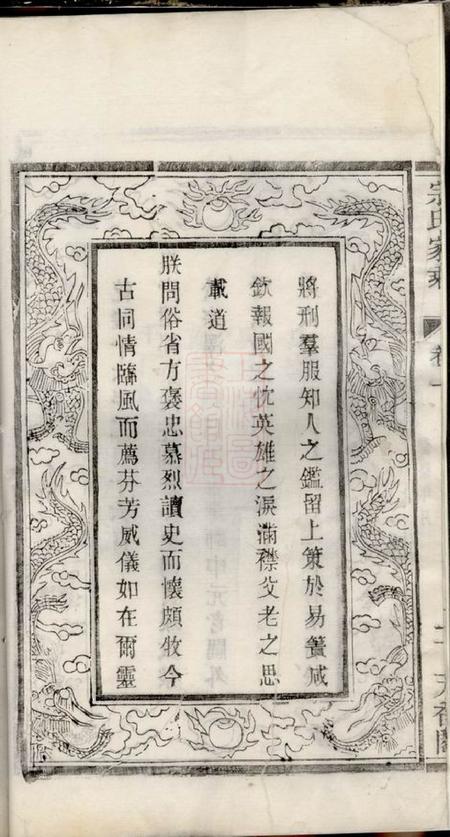 宗氏家乘
卷一
天香閣
將刑羣服知人之鑑留上策於易簀咸
欽報國之忱英雄之淚滿襟父老之思
載道
朕問俗省方褒忠慕烈讀史而懷頗牧今
古同情臨風而薦芬芳威儀如在爾靈